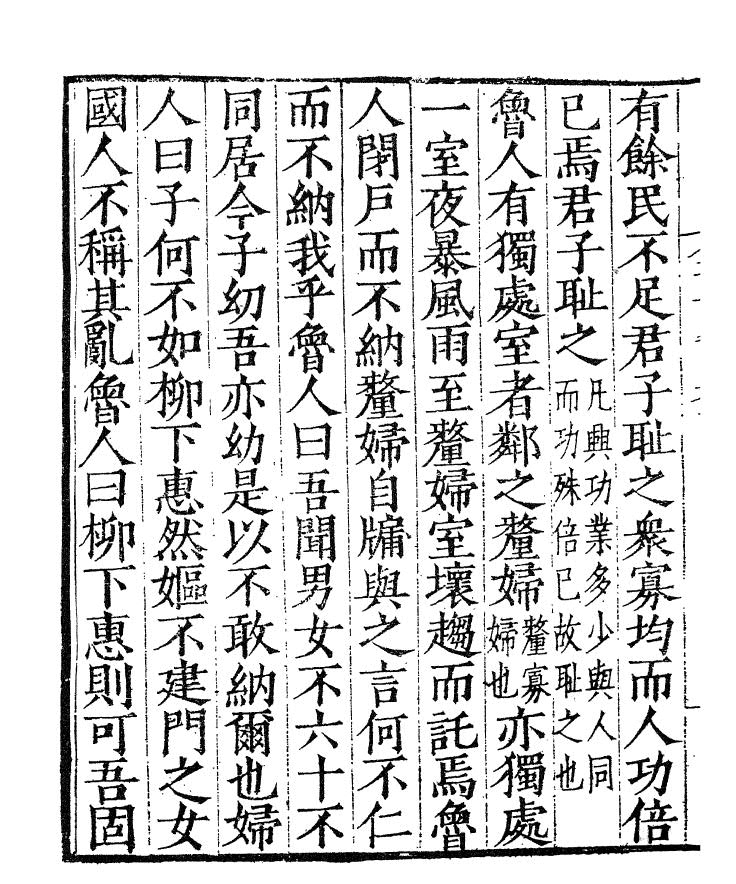 有餘民不足君子耻之衆寡均而人功倍
已焉君子耻之凡興功業多少與人同而功殊倍已故耻之也
魯人有獨處室者鄰之釐婦釐寡婦也亦獨處
一室夜暴風雨至釐婦室壞趨而託焉魯
人閉戶而不納釐婦自牖與之言何不仁
而不納我乎魯人曰吾聞男女不六十不
同居今子幼吾亦幼是以不敢納爾也婦
人曰子何不如柳下惠然嫗不建門之女
國人不稱其亂魯人曰柳下惠則可吾固